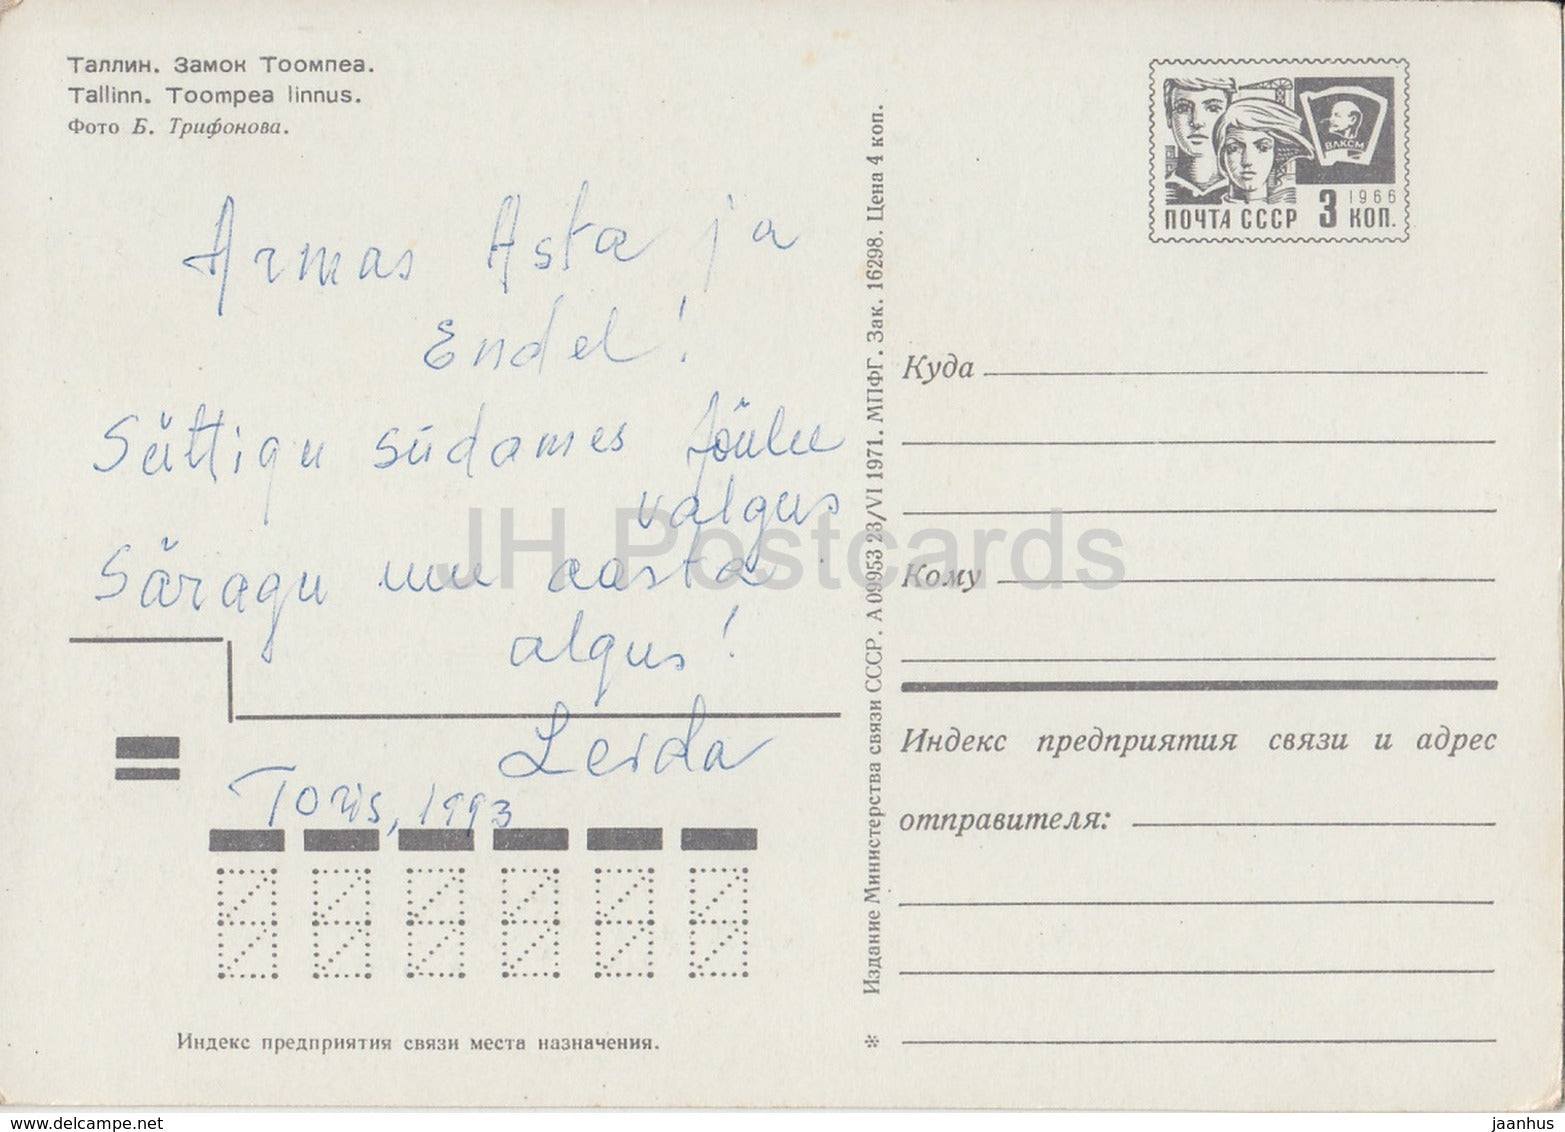 Таллин. Замок Тоомпеа.
Tallinn. Toompea linnus.
Фото Б. Трифонова.
Armas Asta ja
Endel!
Süttigu südames Jõulu
valgus
Säragu uue aasta
algus!
Leida
Toris, 1993
Индекс предприятия связи места назначения.
Издание Министерства связи СССР. А 09953 23/VI 1971. МПФГ. Зак. 16298. Цена 4 коп.
ВЛКСМ
1966
ПОЧТА СССР 3 КОП.
Куда
Кому
Индекс предприятия связи и адрес
отправителя:
*
JH Postcards
www.delcampe.net
jaanhus